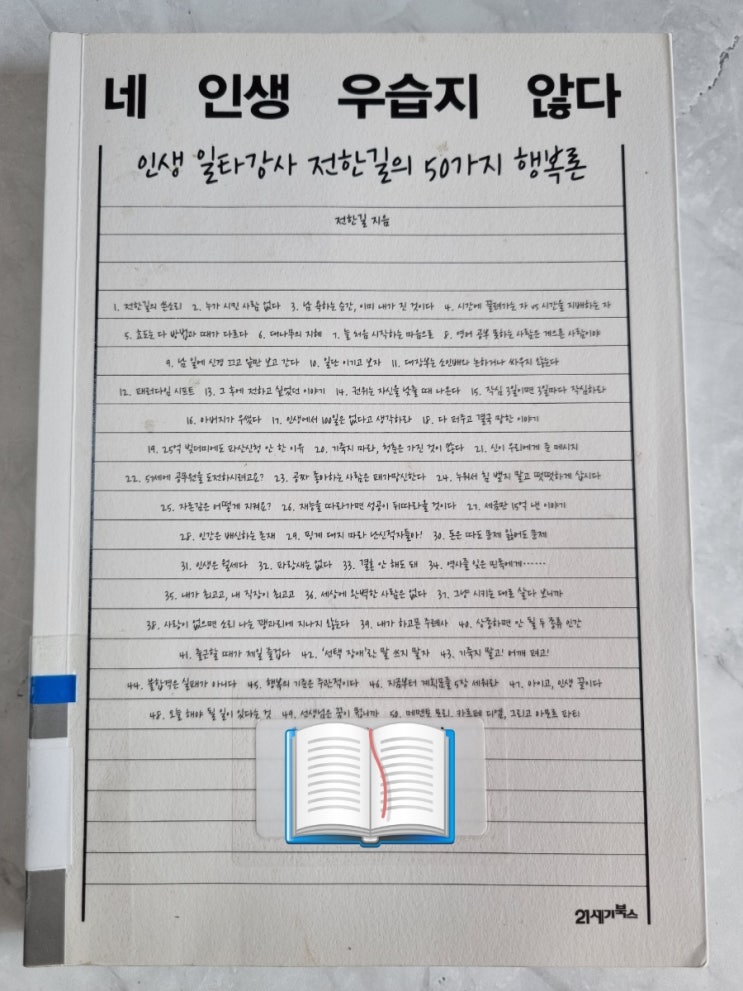 네 인생 우습지 않다
인생 일타강사 전한길의 50가지 행복론
전한길 지음
1. 전한길의 쓴소리 2. 누가 시킨 사람 없다 3. 남 욕하는 순간, 이미 내가 진 것이다 4. 시간에 끌려가는 자 vs 시간을 지배하는 자
5. 효도는 다 방법과 때가 다르다 6. 대나무의 지혜 7. 늘 처음 시작하는 마음으로 8. 영어 공부 못하는 사람은 게으른 사람이야
9. 남 일에 신경 끄고 앞만 보고 간다 10. 일단 이기고 보자 11. 대장부는 소인배와 논하거나 싸우지 않는다
12. 패러다임 시프트 13. 그 후에 전하고 싶었던 이야기 14. 권위는 자신을 낮출 때 나온다 15. 작심 3일이면 3일마다 작심하라
16. 아버지가 우셨다 17. 인생에서 100일은 없다고 생각하라 18. 다 퍼주고 결국 망한 이야기
19. 25억 빚더미에도 파산신청 안 한 이유 20. 기죽지 마라, 청춘은 가진 것이 많다 21. 신이 우리에게 준 메시지
22. 57세에 공무원을 도전하시려고요? 23. 공짜 좋아하는 사람은 패가망신한다 24. 누워서 침 뱉지 말고 떳떳하게 삽시다
25. 자존감은 어떻게 지켜요? 26. 재능을 따라가면 성공이 뒤따라올 것이다 27. 세금만 15억 낸 이야기
28. 인간은 배신하는 존재 29. 핑계 대지 마라 난신적자들아! 30. 돈은 많아도 문제 없어도 문제
31. 인생은 월세다 32. 파랑새는 없다 33. 결혼 안 해도 돼 34. 역사를 잊은 민족에게……
35. 내가 최고고, 내 직장이 최고고 36. 세상에 완벽한 사람은 없다 37. 그냥 시키는 대로 살다 보니까
38. 사랑이 없으면 소리 나는 꽹과리에 지나지 않는다 39. 내가 하고픈 주례사 40. 상종하면 안 될 두 종류 인간
41. 출근할 때가 제일 즐겁다 42. '선택 장애'란 말 쓰지 말자 43. 기죽지 말고! 어깨 펴고!
44. 불합격은 실패가 아니다 45. 행복의 기준은 주관적이다 46. 지금부터 계획표를 5장 세워라 47. 아이고, 인생 꿀이다
48. 오늘 해야 될 일이 있다는 것 49. 선생님은 꿈이 뭡니까 50. 메멘토 모리, 카르페 디엠, 그리고 아모르 파티
21세기북스